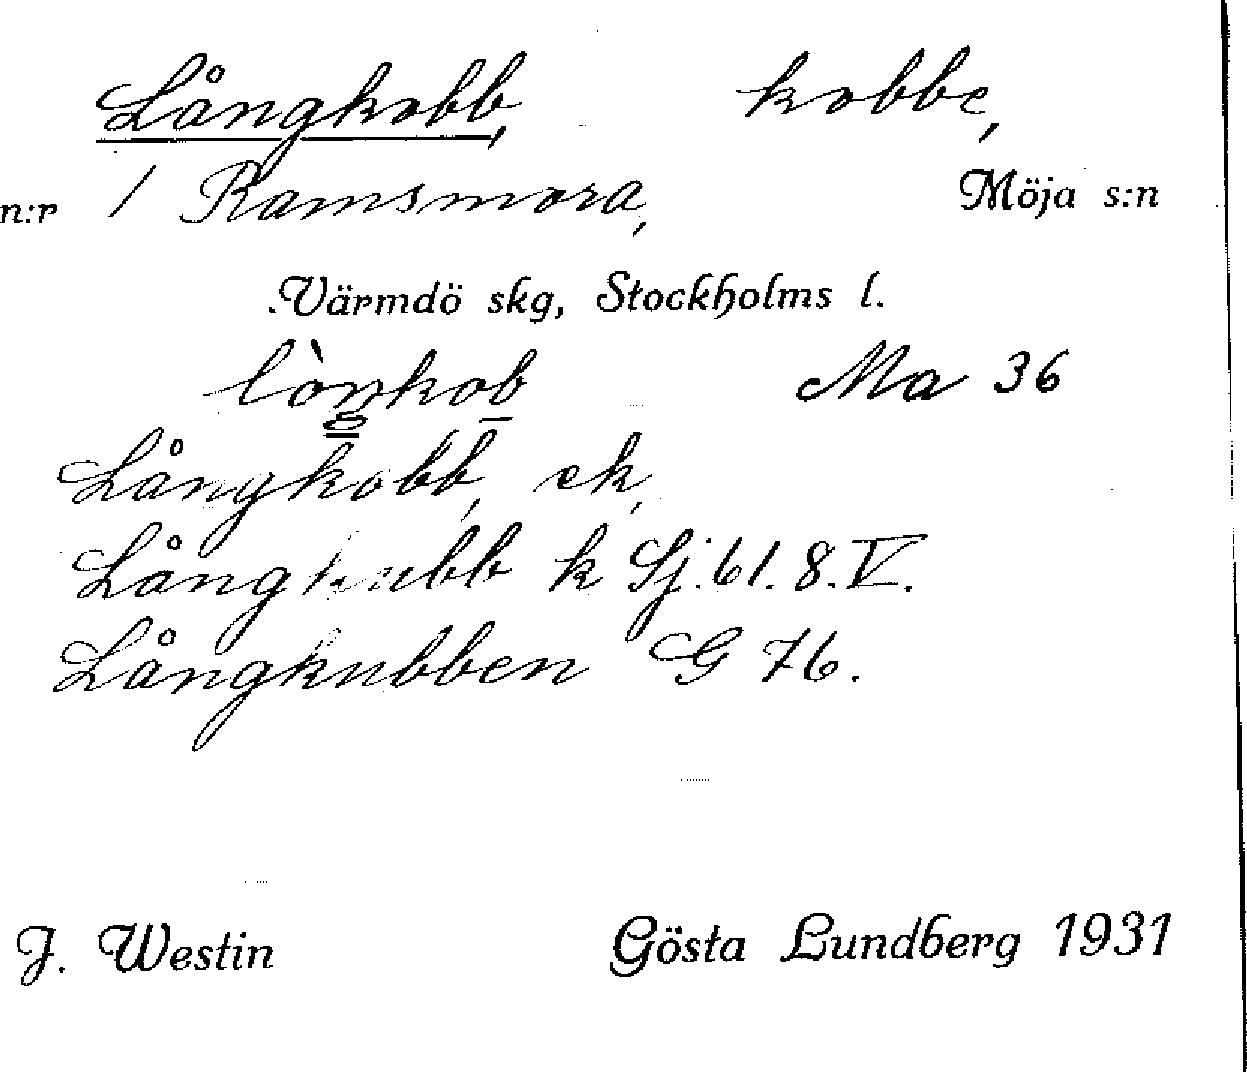 Långkobb, kobbe,
n:r 1 Ramsmora, Möja s:n
Värmdö skg, Stockholms l.
lòŋkob Ma 36
Långkobb, ek,
Långkubb k Sj. 61. 8. V.
Långkubben G 76.
J. Westin Gösta Lundberg 1931